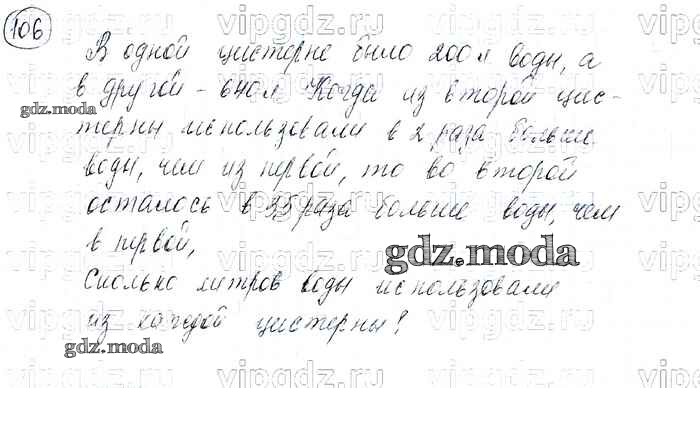 106
В одной цистерне было 200 л воды, а
в другой - 640 л. Когда из второй цис-
терны использовали в 2 раза больше
воды, чем из первой, то во второй
осталось в 3,5 раза больше воды, чем
в первой,
Сколько литров воды использовали
из каждой цистерны?
gdz.moda
gdz.moda
gdz.moda
vipgdz.ru